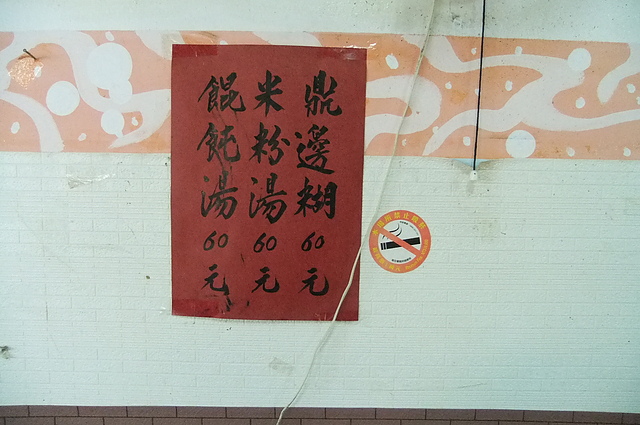 鼎邊糊60元
米粉湯60元
餛飩湯60元